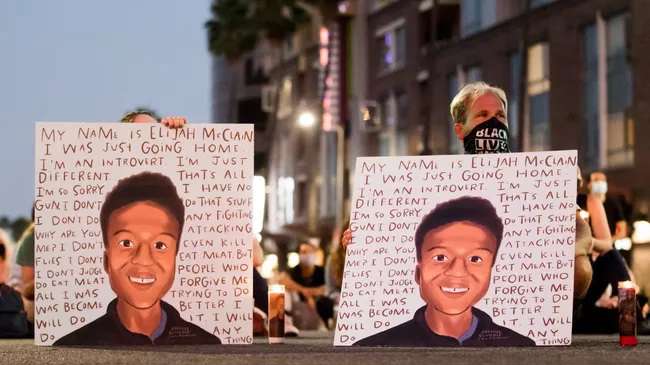 MY NAME IS ELIJAH McCLAIN
I WAS JUST GOING HOME.
I'M AN INTROVERT. I'M JUST
DIFFERENT. THAT'S ALL
I'M SO SORRY I HAVE NO
GUN I DON'T DO THAT STUFF
I DON'T DO ANY FIGHTING
WHY ARE YOU ATTACKING
ME? I DON'T EVEN KILL
FLIES I DON'T EAT MEAT. BUT
I DON'T JUDGE PEOPLE WHO
DO EAT MEAT
ALL I WAS TRYING TO DO
WAS BECOME BETTER
I WILL DO IT. I WILL
DO ANY
THING
BLACK
LIVES
MY NAME IS ELIJAH McCLAIN
I WAS JUST GOING HOME.
I'M AN INTROVERT. I'M JUST
DIFFERENT. THAT'S ALL
I'M SO SORRY I HAVE NO
GUN I DON'T DO THAT STUFF
I DON'T DO ANY FIGHTING
WHY ARE YOU ATTACKING
ME? I DON'T EVEN KILL
FLIES I DON'T EAT MEAT. BUT
I DON'T JUDGE PEOPLE WHO
DO EAT MEAT
ALL I WAS TRYING TO DO
WAS BECOME BETTER
I WILL DO IT. I WILL
DO ANY
THING